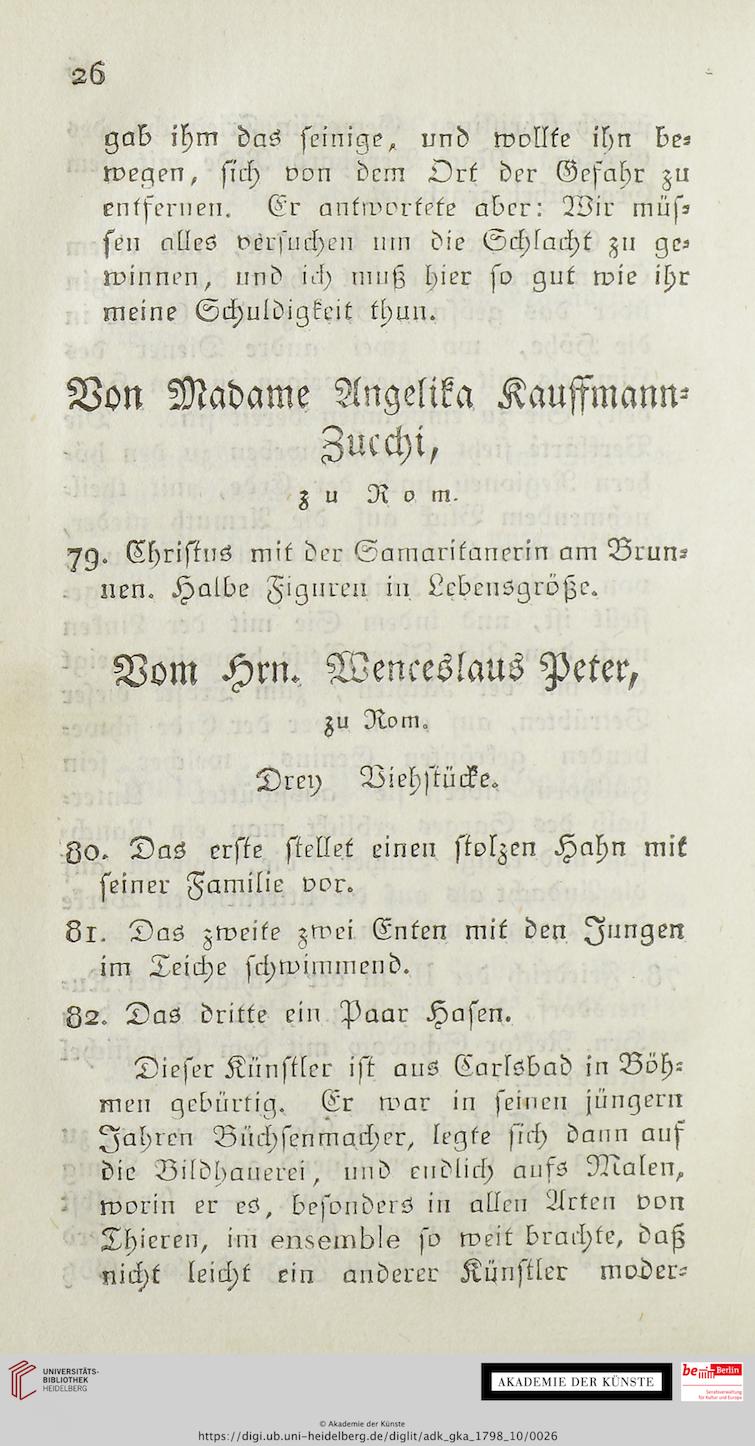 26
gab ihm das seinige, und wollte ihn be⸗
wegen, sich von dem Ort der Gefahr zu
entfernen. Er antwortete aber: Wir müs⸗
sen alles versuchen um die Schlacht zu ge⸗
winnen, und ich muß hier so gut wie ihr
meine Schuldigkeit thun.
Von Madame Angelika Kauffmann⸗
Zucchi,
zu Rom.
79. Christus mit der Samaritanerin am Brun⸗
nen. Halbe Figuren in Lebensgröße.
Vom Hrn. Wenceslaus Peter,
zu Rom.
Drey Viehstücke.
80. Das erste stellet einen stolzen Hahn mit
seiner Familie vor.
81. Das zweite zwei Enten mit den Jungen
im Teiche schwimmend.
82. Das dritte ein Paar Hasen.
Dieser Künstler ist aus Carlsbad in Böh⸗
men gebürtig. Er war in seinen jüngern
Jahren Büchsenmacher, legte sich dann auf
die Bildhauerei, und endlich aufs Malen,
worin er es, besonders in allen Arten von
Thieren, im ensemble so weit brachte, daß
nicht leicht ein anderer Künstler moder⸗
UNIVERSITÄTS-
BIBLIOTHEK
HEIDELBERG
AKADEMIE DER KÜNSTE
be Berlin
Senatsverwaltung
für Kultur und Europa
© Akademie der Künste
https://digi.ub.uni-heidelberg.de/diglit/adk_gka_1798_10/0026